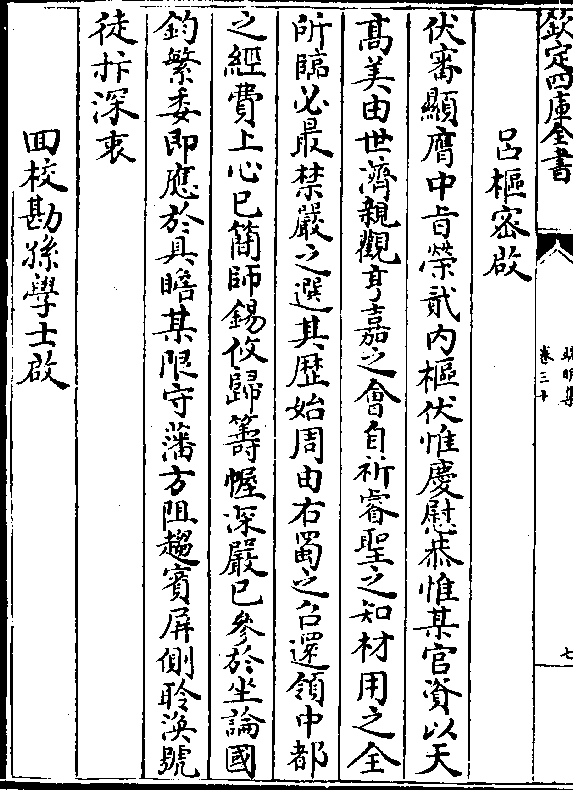 欽定四庫全書
端明集
卷三十
七
呂樞密啟
伏審顯膺中旨榮貳内樞伏惟慶慰恭惟某官資以天
髙美由世濟親觀亨嘉之會自祈睿聖之知材用之全
所臨必最禁嚴之選其歴始周由右蜀之召還領中都
之經費上心已簡師錫攸歸籌幄深嚴已參於坐論國
鈞繁委即應於具瞻某限守藩方阻趨賓屏側聆渙號
徒抃深衷
回校勘孫學士啟